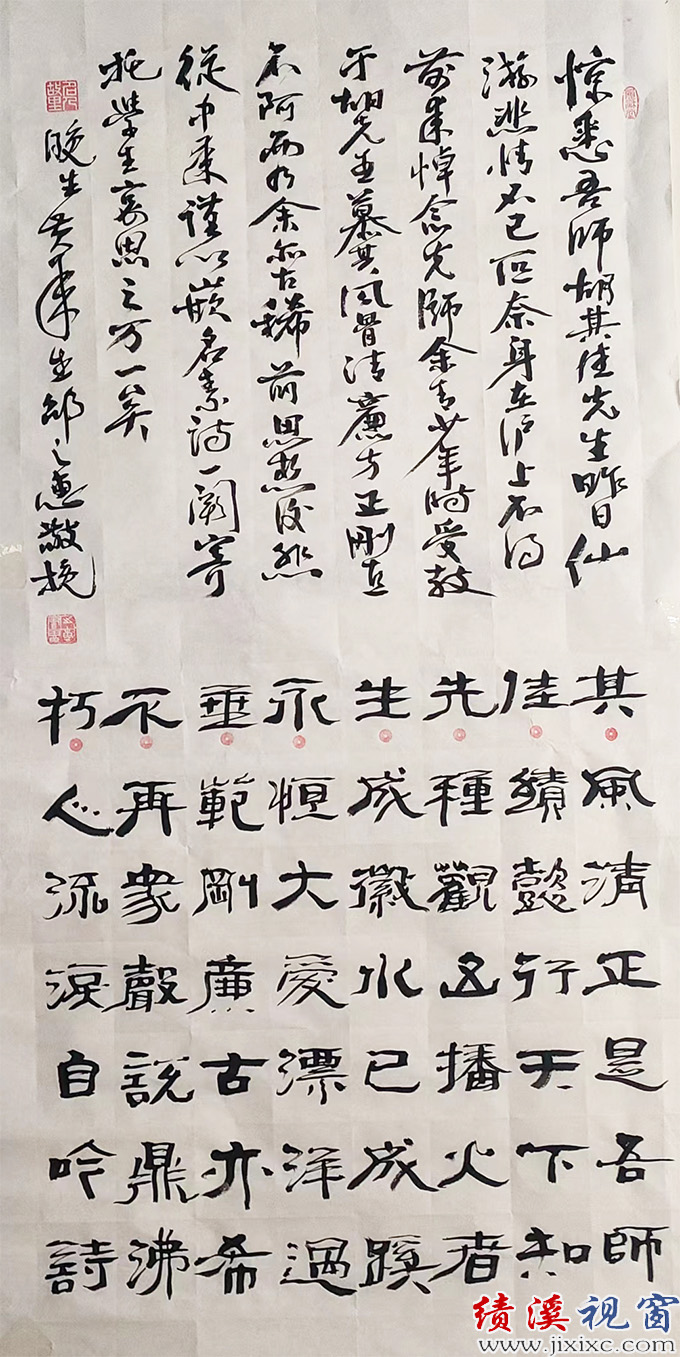 惊悉吾师胡其佳先生昨日仙
游悲情不已但奈身在沪上不得
前来悼念先师余青少年时受教
于胡先生慕其风骨清廉方正刚直
不阿而今余亦古稀前思然
從中来谨以嵌名素诗一阕寄
托学生哀思之万一矣
晚生邵之惠敬挽
其風清正是吾師
佳績懿行天下知
先種觀播火者
生成徽水已成蹊
永恒大愛漂洋過
垂範剛廉古亦希
不再衆聲說鼎沸
朽人流淚自吟詩
绩溪视窗
www.jixixc.com